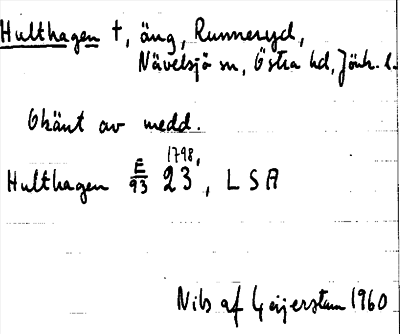 Hulthagen †, äng, Runneryd,
Nävelsjö sn, Östra hd, Jönk. l.
Okänt av medd.
Hulthagen E/93 23 1798, LSA
Nils af Geijerstam 1960